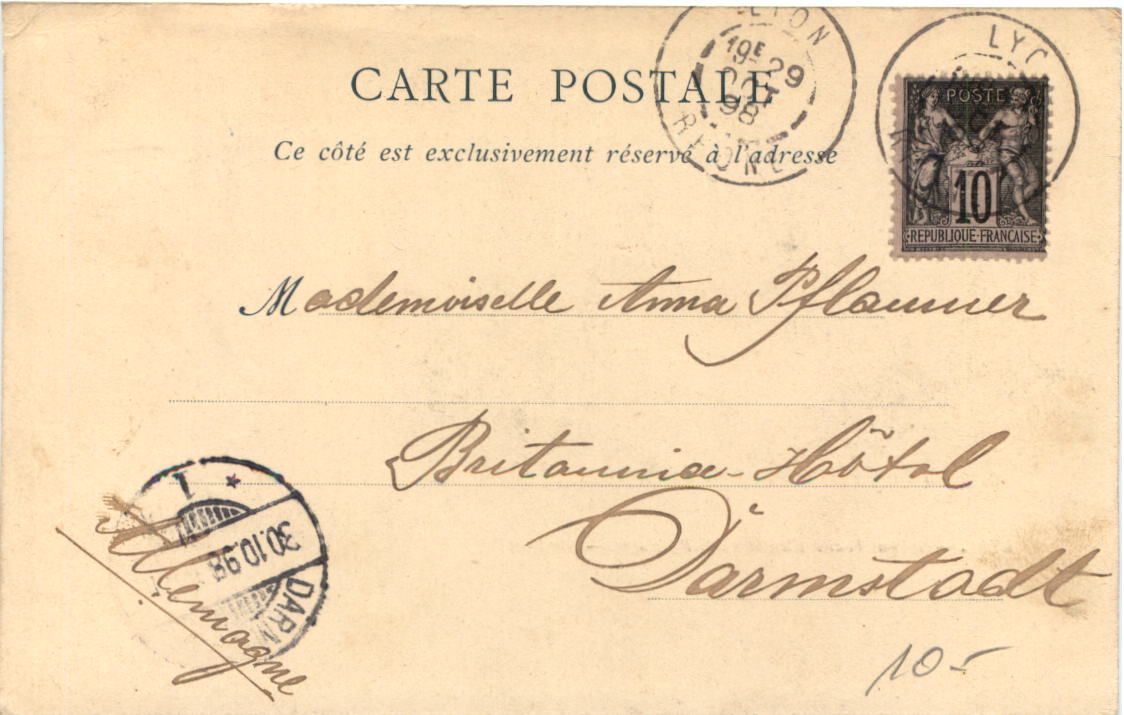 CARTE POSTALE
Ce côté est exclusivement réservé à l'adresse
LYON
19E 29
OCT
98
RHONE
LYO
POSTE
10
REPUBLIQUE·FRANÇAISE
Mademoiselle Anna Pflaumer
Britannia-Hôtel
Darmstadt
Allemagne
1 *
30.10.98
DARM
10-